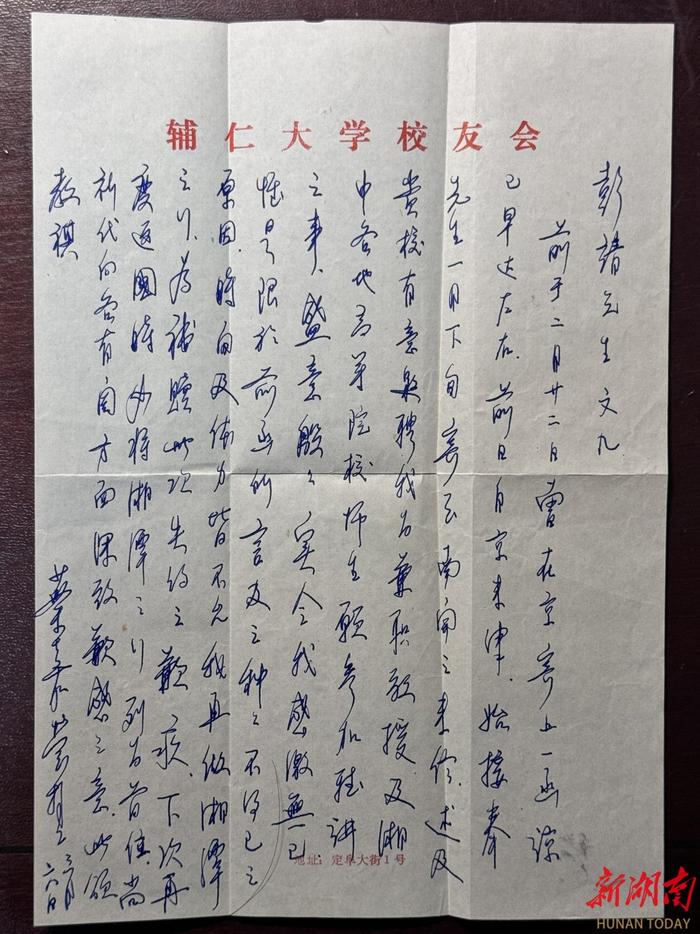 辅仁大学校友会
彭靖先生文几
前于二月廿二日曾在京寄上一函谅
已早达左右.前日自京来津.始接奉
先生一月下旬寄至南开之来信.述及
贵校有意敦聘我为兼职教授及湘
中各地高等院校师生愿参加听讲
之事、盛意殷々实令我感激無已
惟是限於前函所言及之种々不得已之
原因.时间及体力皆不允我再做湘潭
之行.为補赎此次失约之歉疚.下次再
度返國时必将湘潭之行列为首位.尚
祈代向各有関方面深致歉感之意.此颂
教祺
葉嘉莹拜上 三月六日
地址：定阜大街1号
新湖南
HUNAN TODAY